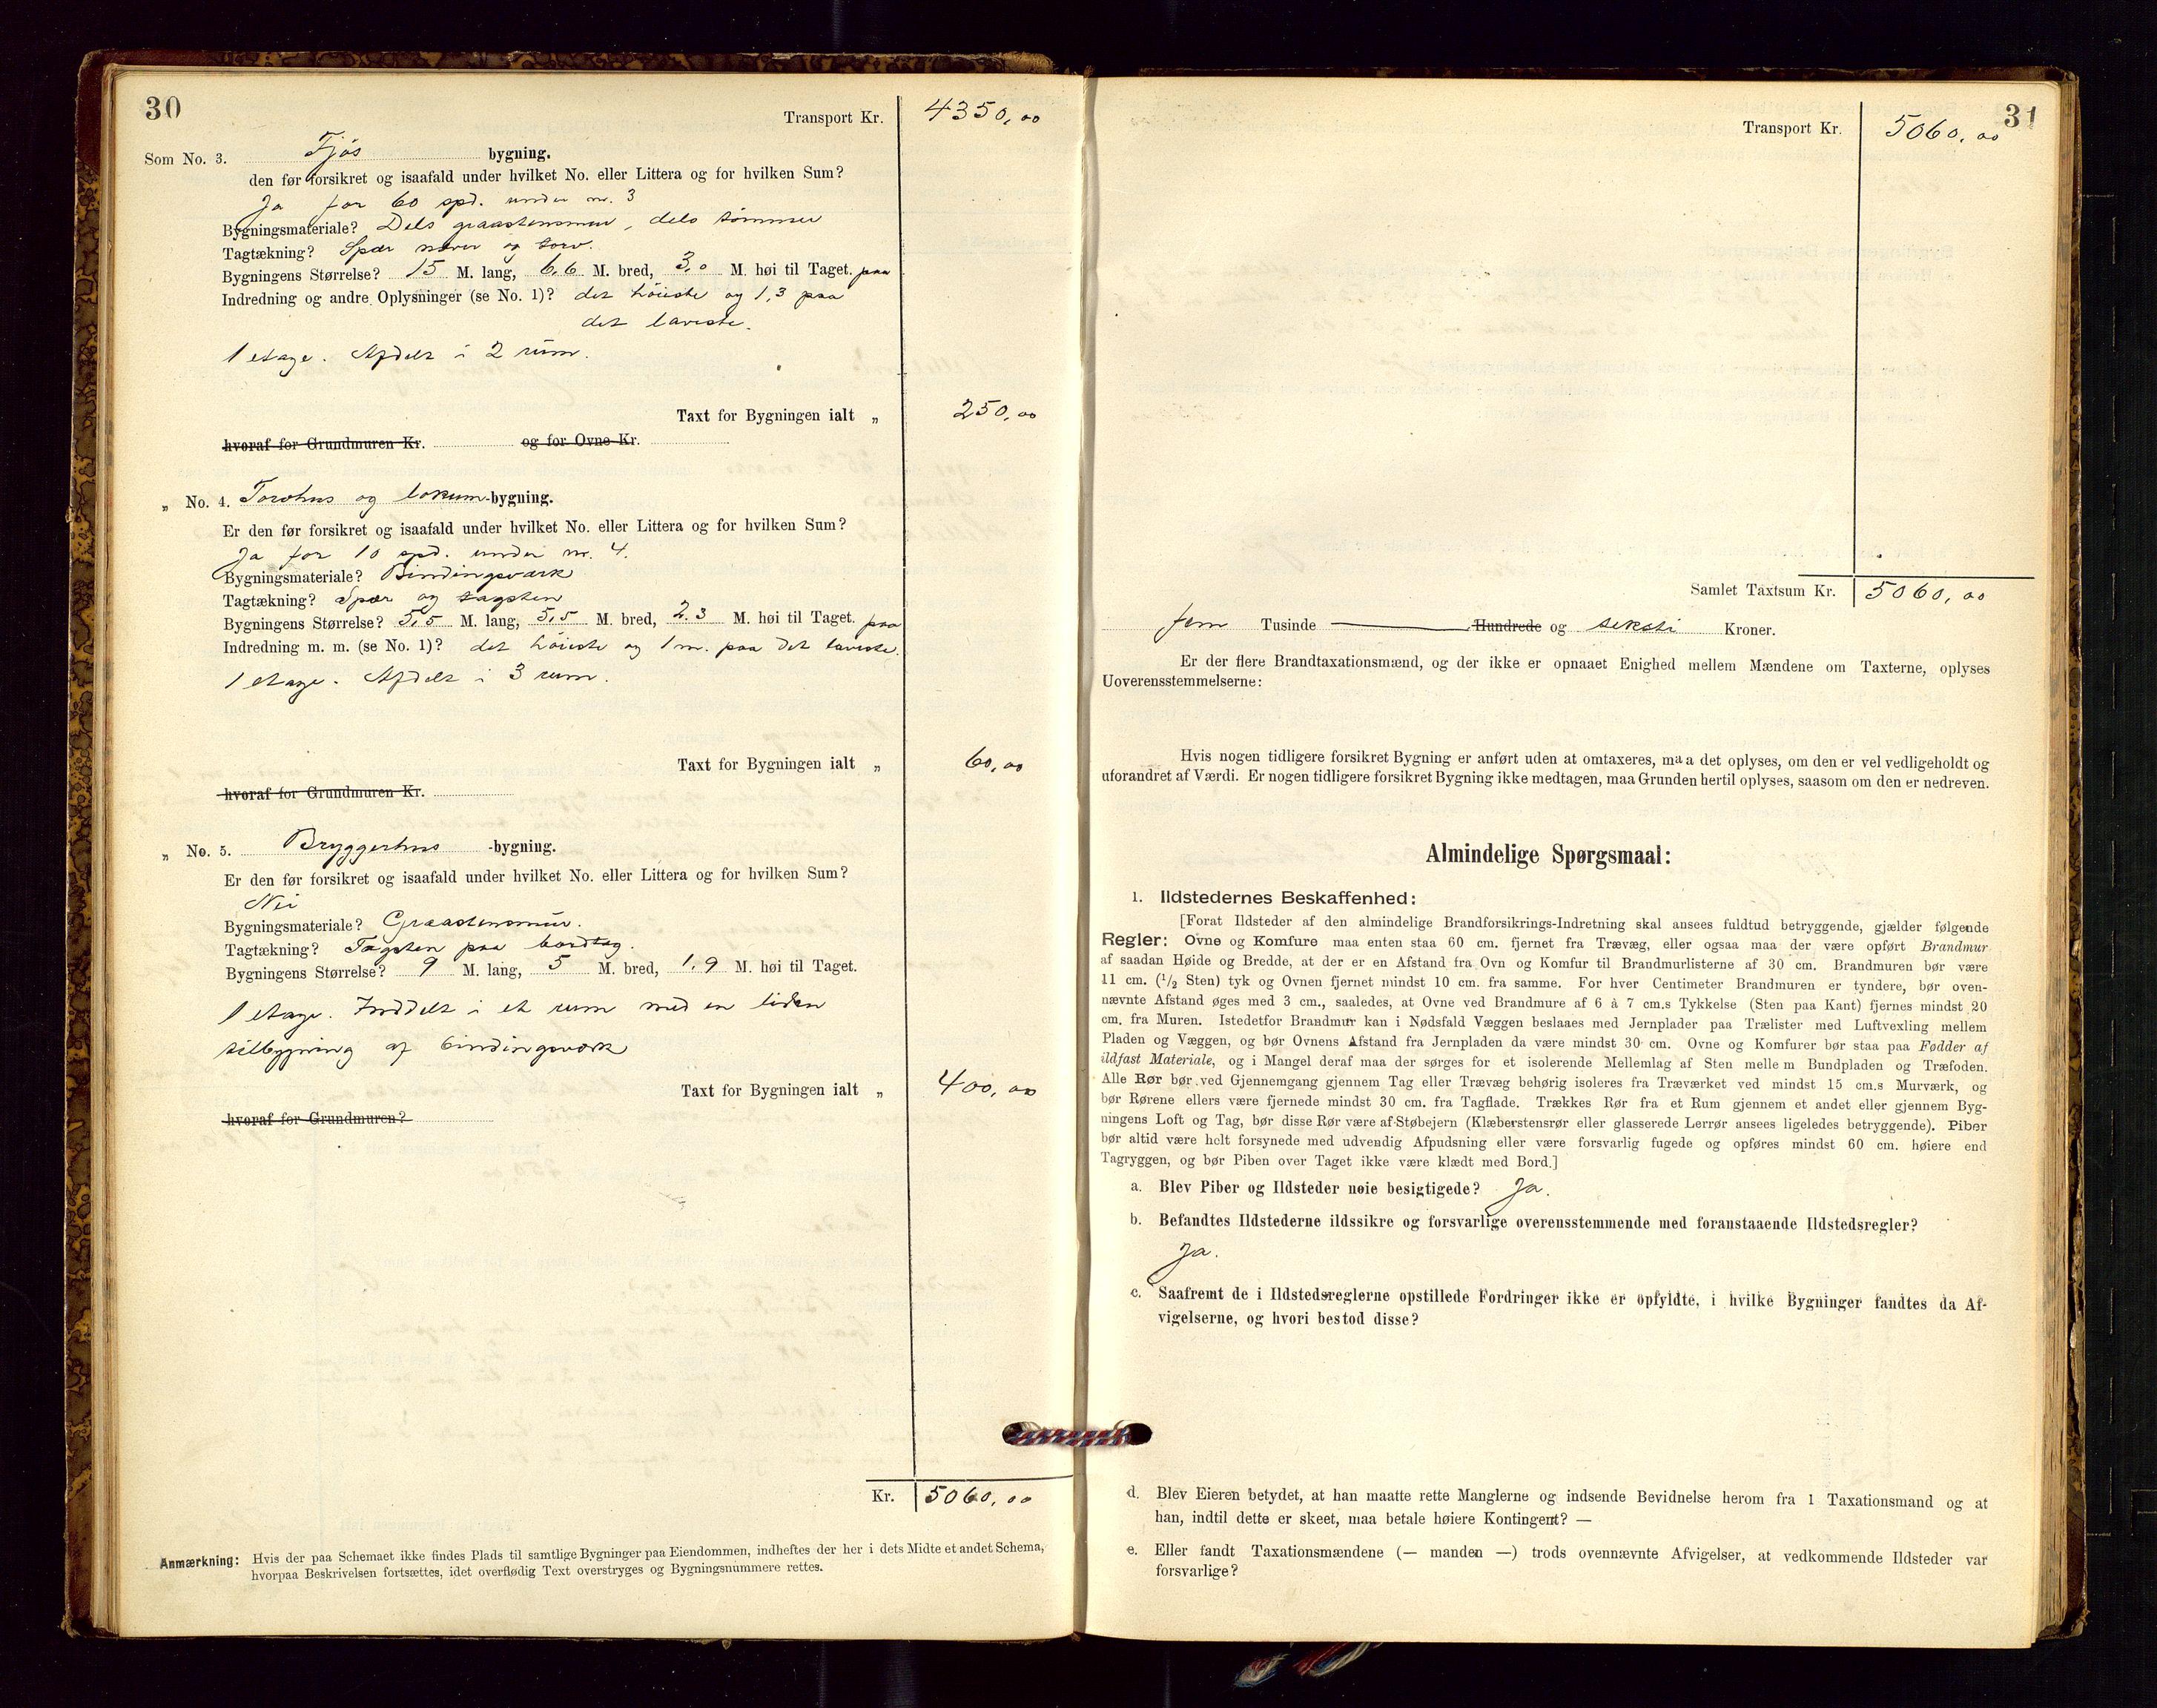 30
Transport Kr. 4350,00
Som No. 3. Fjös bygning.
den før forsikret og isaafald under hvilket No. eller Littera og for hvilken Sum?
Ja for 60 spd. under nr. 3
Bygningsmateriale? Dels graastensmur, dels tömmer
Tagtækning? Spær næver og torv.
Bygningens Størrelse? 15 M. lang, 6,6 M. bred, 3,0 M. høi til Taget. paa
Indredning og andre Oplysninger (se No. 1)? det höieste og 1,3 paa
det laveste.
1 etage. Afdelt i 2 rum.
Taxt for Bygningen ialt „ 250,00
hvoraf for Grundmuren Kr. og for Ovne Kr.
„ No. 4. Torvhus og lokum-bygning.
Er den før forsikret og isaafald under hvilket No. eller Littera og for hvilken Sum?
Ja for 10 spd. under nr. 4.
Bygningsmateriale? Bindingsværk
Tagtækning? Spær og tagsten
Bygningens Størrelse? 5,5 M. lang, 5,5 M. bred, 2.3 M. høi til Taget. paa
Indredning m. m. (se No. 1)? det höieste og 1 m. paa det laveste.
1 etage. Afdelt i 3 rum.
Taxt for Bygningen ialt „ 60,00
hvoraf for Grundmuren Kr.
„ No. 5. Bryggerhus -bygning.
Er den før forsikret og isaafald under hvilket No. eller Littera og for hvilken Sum?
Nei
Bygningsmateriale? Graastensmur.
Tagtækning? Tagsten paa bordtag.
Bygningens Størrelse? 9 M. lang, 5 M. bred, 1,9 M. høi til Taget.
1 etage. Inddelt i et rum med en liden
tilbygning af bindingsværk
Taxt for Bygningen ialt „ 400,00
hvoraf for Grundmuren?
Kr. 5060,00
Anmærkning: Hvis der paa Schemaet ikke findes Plads til samtlige Bygninger paa Eiendommen, indheftes der her i dets Midte et andet Schema,
hvorpaa Beskrivelsen fortsættes, idet overflødig Text overstryges og Bygningsnummere rettes.
31
Transport Kr. 5060,00
Samlet Taxtsum Kr. 5060,00
fem Tusinde Hundrede og seksti Kroner.
Er der flere Brandtaxationsmænd, og der ikke er opnaaet Enighed mellem Mændene om Taxterne, oplyses
Uoverensstemmelserne:
Hvis nogen tidligere forsikret Bygning er anført uden at omtaxeres, maa det oplyses, om den er vel vedligeholdt og
uforandret af Værdi. Er nogen tidligere forsikret Bygning ikke medtagen, maa Grunden hertil oplyses, saasom om den er nedreven.
Almindelige Spørgsmaal:
1. Ildstedernes Beskaffenhed:
[Forat Ildsteder af den almindelige Brandforsikrings-Indretning skal ansees fuldtud betryggende, gjælder følgende
Regler: Ovne og Komfure maa enten staa 60 cm. fjernet fra Trævæg, eller ogsaa maa der være opført Brandmur
af saadan Høide og Bredde, at der er en Afstand fra Ovn og Komfur til Brandmurlisterne af 30 cm. Brandmuren bør være
11 cm. (1/2 Sten) tyk og Ovnen fjernet mindst 10 cm. fra samme. For hver Centimeter Brandmuren er tyndere, bør oven-
nævnte Afstand øges med 3 cm., saaledes, at Ovne ved Brandmure af 6 à 7 cm.s Tykkelse (Sten paa Kant) fjernes mindst 20
cm. fra Muren. Istedetfor Brandmur kan i Nødsfald Væggen beslaaes med Jernplader paa Trælister med Luftvexling mellem
Pladen og Væggen, og bør Ovnens Afstand fra Jernpladen da være mindst 30 cm. Ovne og Komfurer bør staa paa Fødder af
ildfast Materiale, og i Mangel deraf maa der sørges for et isolerende Mellemlag af Sten mellem Bundpladen og Træfoden.
Alle Rør bør ved Gjennemgang gjennem Tag eller Trævæg behørig isoleres fra Træværket ved mindst 15 cm.s Murværk, og
bør Rørene ellers være fjernede mindst 30 cm. fra Tagflade. Trækkes Rør fra et Rum gjennem et andet eller gjennem Byg-
ningens Loft og Tag, bør disse Rør være af Støbejern (Klæberstensrør eller glasserede Lerrør ansees ligeledes betryggende). Piber
bør altid være helt forsynede med udvendig Afpudsning eller være forsvarlig fugede og opføres mindst 60 cm. høiere end
Tagryggen, og bør Piben over Taget ikke være klædt med Bord.]
a. Blev Piber og Ildsteder nøie besigtigede? Ja.
b. Befandtes Ildstederne ildssikre og forsvarlige overensstemmende med foranstaaende Ildstedsregler?
Ja.
c. Saafremt de i Ildstedsreglerne opstillede Fordringer ikke er opfyldte, i hvilke Bygninger fandtes da Af-
vigelserne, og hvori bestod disse?
d. Blev Eieren betydet, at han maatte rette Manglerne og indsende Bevidnelse herom fra 1 Taxationsmand og at
han, indtil dette er skeet, maa betale høiere Kontingent? —
e. Eller fandt Taxationsmændene (— manden —) trods ovennævnte Afvigelser, at vedkommende Ildsteder var
forsvarlige?